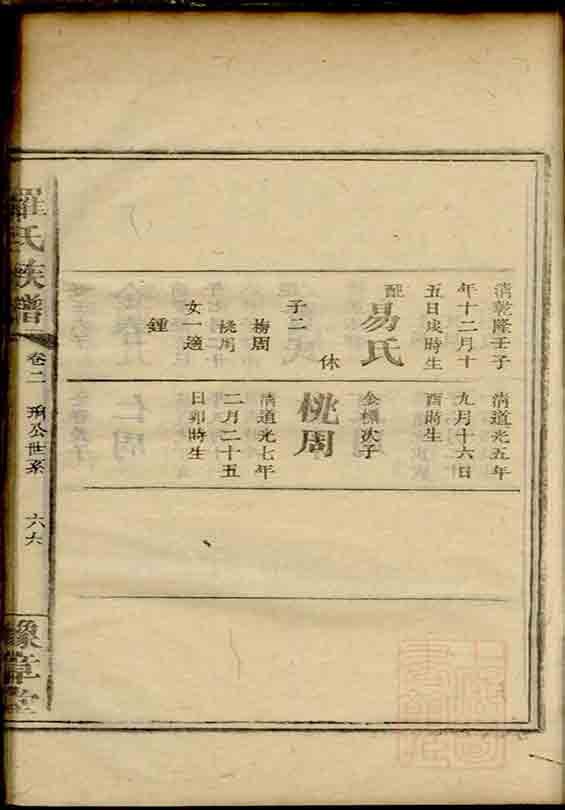 清乾隆壬子
年十二月十
五日戌時生
配
易氏
休
子二
梅周
桃周
女一適
鍾
清道光五年
九月十六日
酉時生
金標次子
桃周
清道光七年
二月二十五
日卯時生
羅氏族譜
卷二
公世系
六六
豫章堂